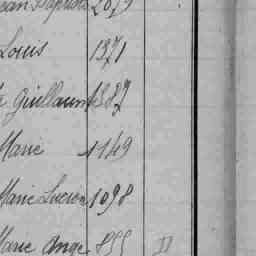 Jean Baptiste 2079
Louis 1371
Guillaume 1382
Marie 1149
Marie Lucien 1098
Marie Ange 855 II